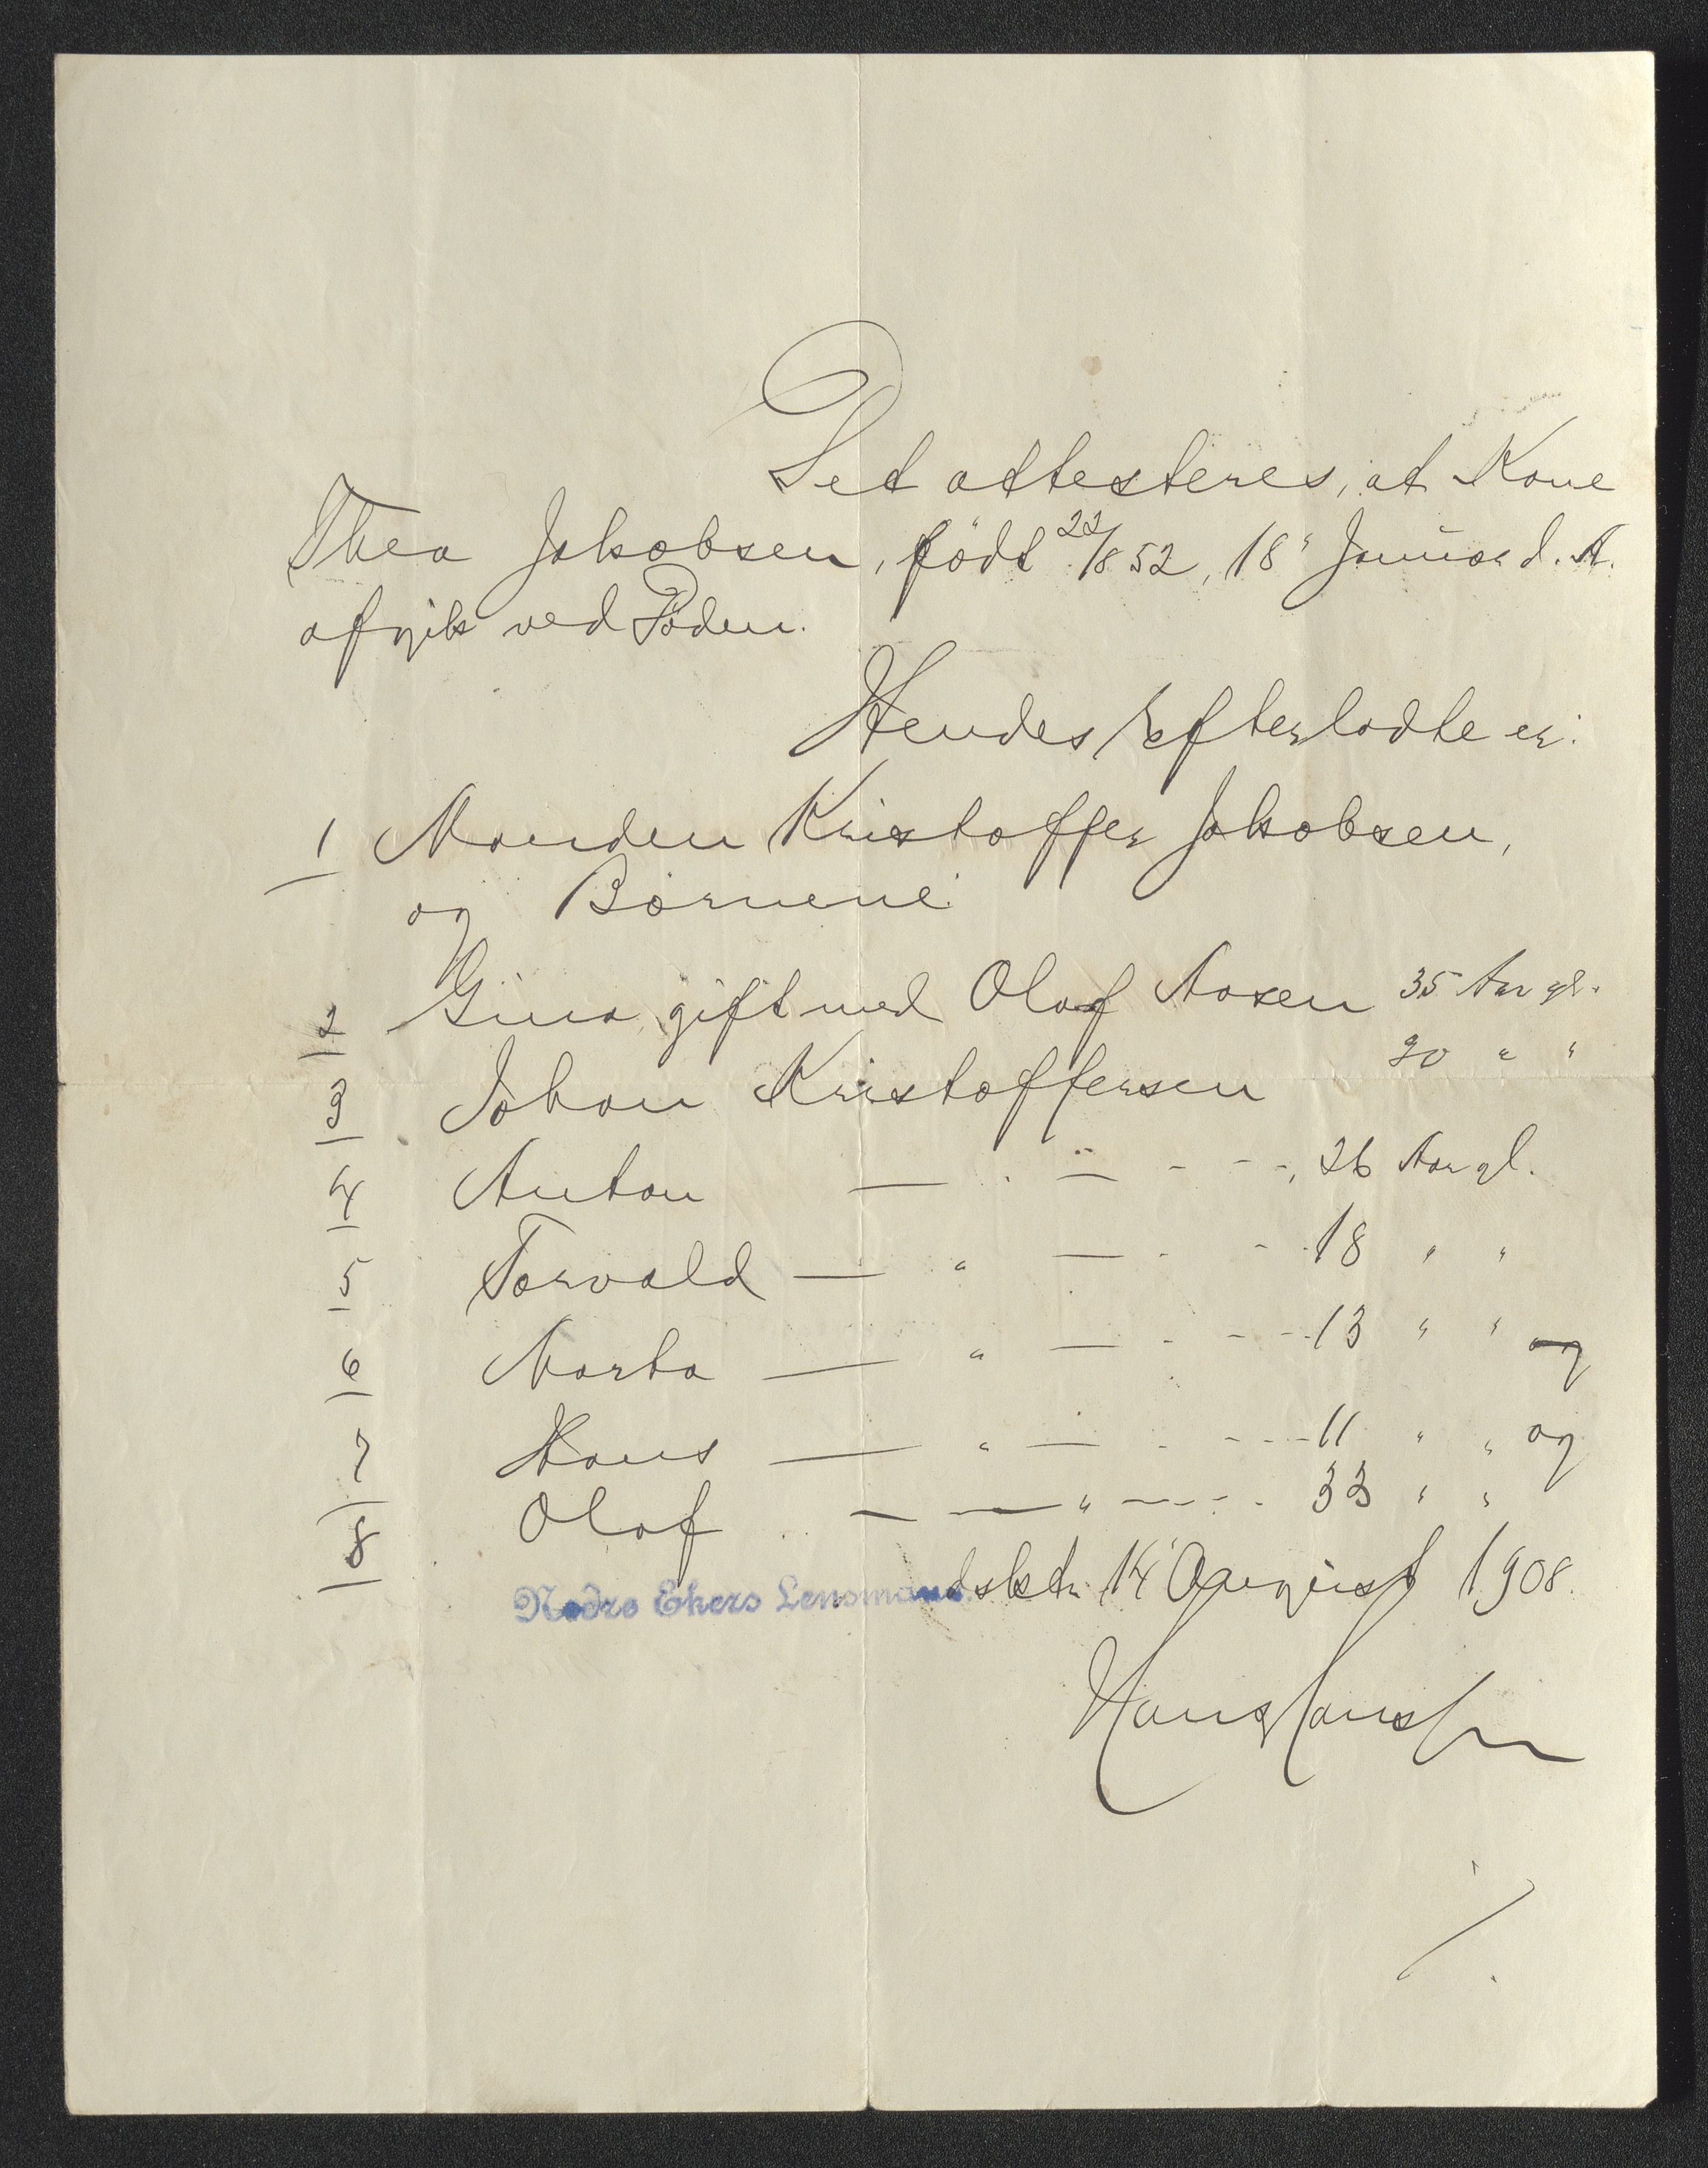 Det attesteres, at Kone
Thea Jakobsen, født 22/1852, 18" Januar d. A.
afgik ved Døden.
Hendes Efterladte er:
1 Manden Kristoffer Jakobsen,
og Børnene:
2 Gina, gift med Olaf Aasen 35 Aar gl.
3 Johan Kristoffersen 30 " "
4 Anton — " — 26 Aar gl.
5 Torvald — " — 18 " "
6 Marta — " — 13 " " og
7 Hans — " — 11 " " og
8 Olaf — " — 33 " "
Nedre Ekers Lensmandsktr. 14 August 1908.
Hans Hansen